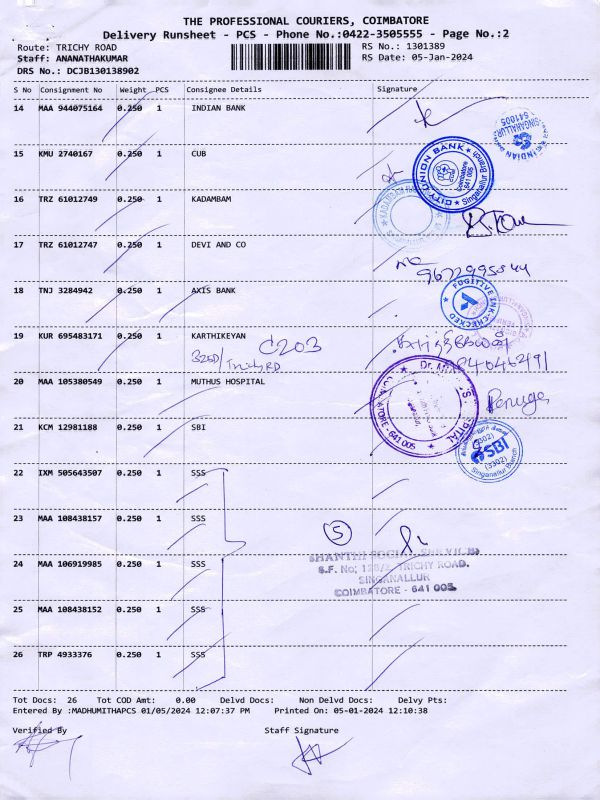 THE PROFESSIONAL COURIERS, COIMBATORE
Delivery Runsheet - PCS - Phone No.:0422-3505555 - Page No.:2
Route: TRICHY ROAD
RS No.: 1301389
Staff: ANANATHAKUMAR
RS Date: 05-Jan-2024
DRS No.: DCJB130138902
S No Consignment No Weight PCS Consignee Details Signature
14 MAA 944075164 0.250 1 INDIAN BANK
SINGANALLUR
641005
INDIAN
15 KMU 2740167 0.250 1 CUB
CITY UNION BANK
Singanallur Branch
CUB
Coimbatore
641 005
16 TRZ 61012749 0.250 1 KADAMBAM
KADAMBAM
17 TRZ 61012747 0.250 1 DEVI AND CO
18 TNJ 3284942 0.250 1 AXIS BANK
FUGITIVE INK-CHECKED
19 KUR 695483171 0.250 1 KARTHIKEYAN
C203
320D/
Trichy RD
20 MAA 105380549 0.250 1 MUTHUS HOSPITAL
Dr.
641 005
21 KCM 12981188 0.250 1 SBI
(3302)
SBI
(3302)
Singanallur Branch
22 IXM 505643507 0.250 1 SSS
23 MAA 108438157 0.250 1 SSS
5
SHANTHI SOCIAL SERVICES
S.F. No; 128/2, TRICHY ROAD.
SINGANALLUR
COIMBATORE - 641 005.
24 MAA 106919985 0.250 1 SSS
25 MAA 108438152 0.250 1 SSS
26 TRP 4933376 0.250 1 SSS
Tot Docs: 26 Tot COD Amt: 0.00 Delvd Docs: Non Delvd Docs: Delvy Pts:
Entered By :MADHUMITHAPCS 01/05/2024 12:07:37 PM Printed On: 05-01-2024 12:10:38
Verified By Staff Signature